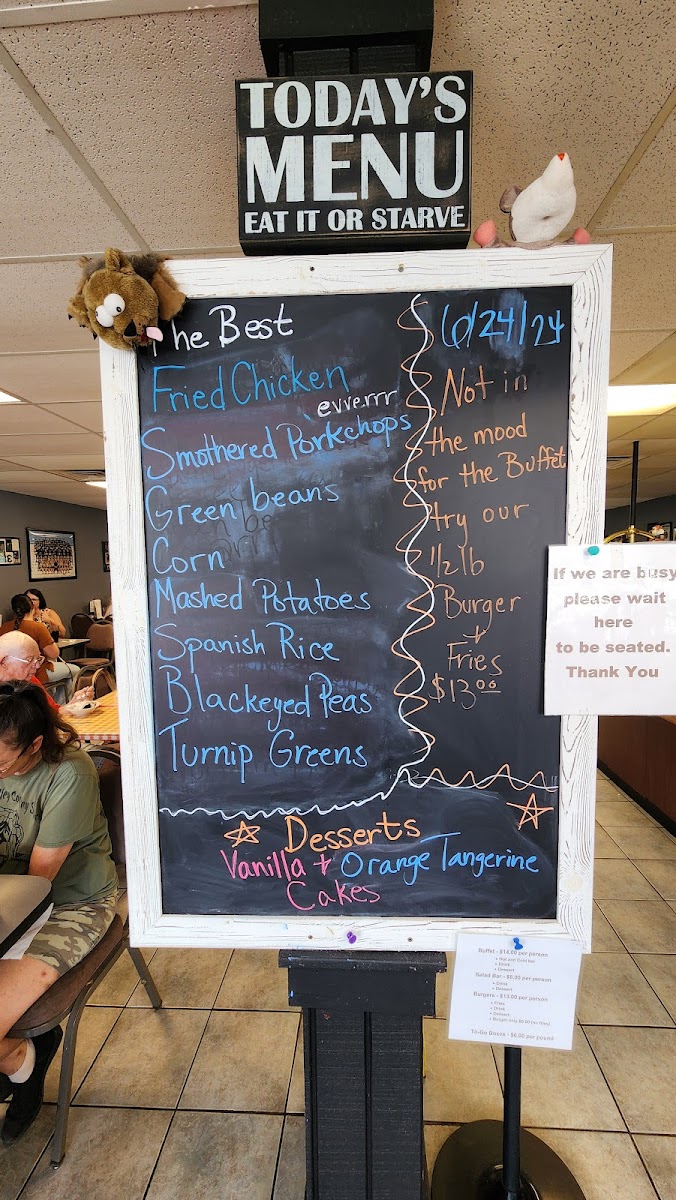 TODAY'S
MENU
EAT IT OR STARVE
The Best
Fried Chicken
evverrr
Smothered Porkchops
Green beans
Corn
Mashed Potatoes
Spanish Rice
Blackeyed Peas
Turnip Greens
6/24/24
Not in
the mood
for the Buffet
try our
1/2 lb
Burger
+
Fries
$13.00
Desserts
Vanilla + Orange Tangerine
Cakes
If we are busy
please wait
here
to be seated.
Thank You
Buffet - $14.00 per person
Drink
Dessert
Salad Bar - $9.00 per person
Drink
Dessert
Burgers - $13.00 per person
Fries
Drink
Dessert
To-Go Boxes - $8.00 per pound